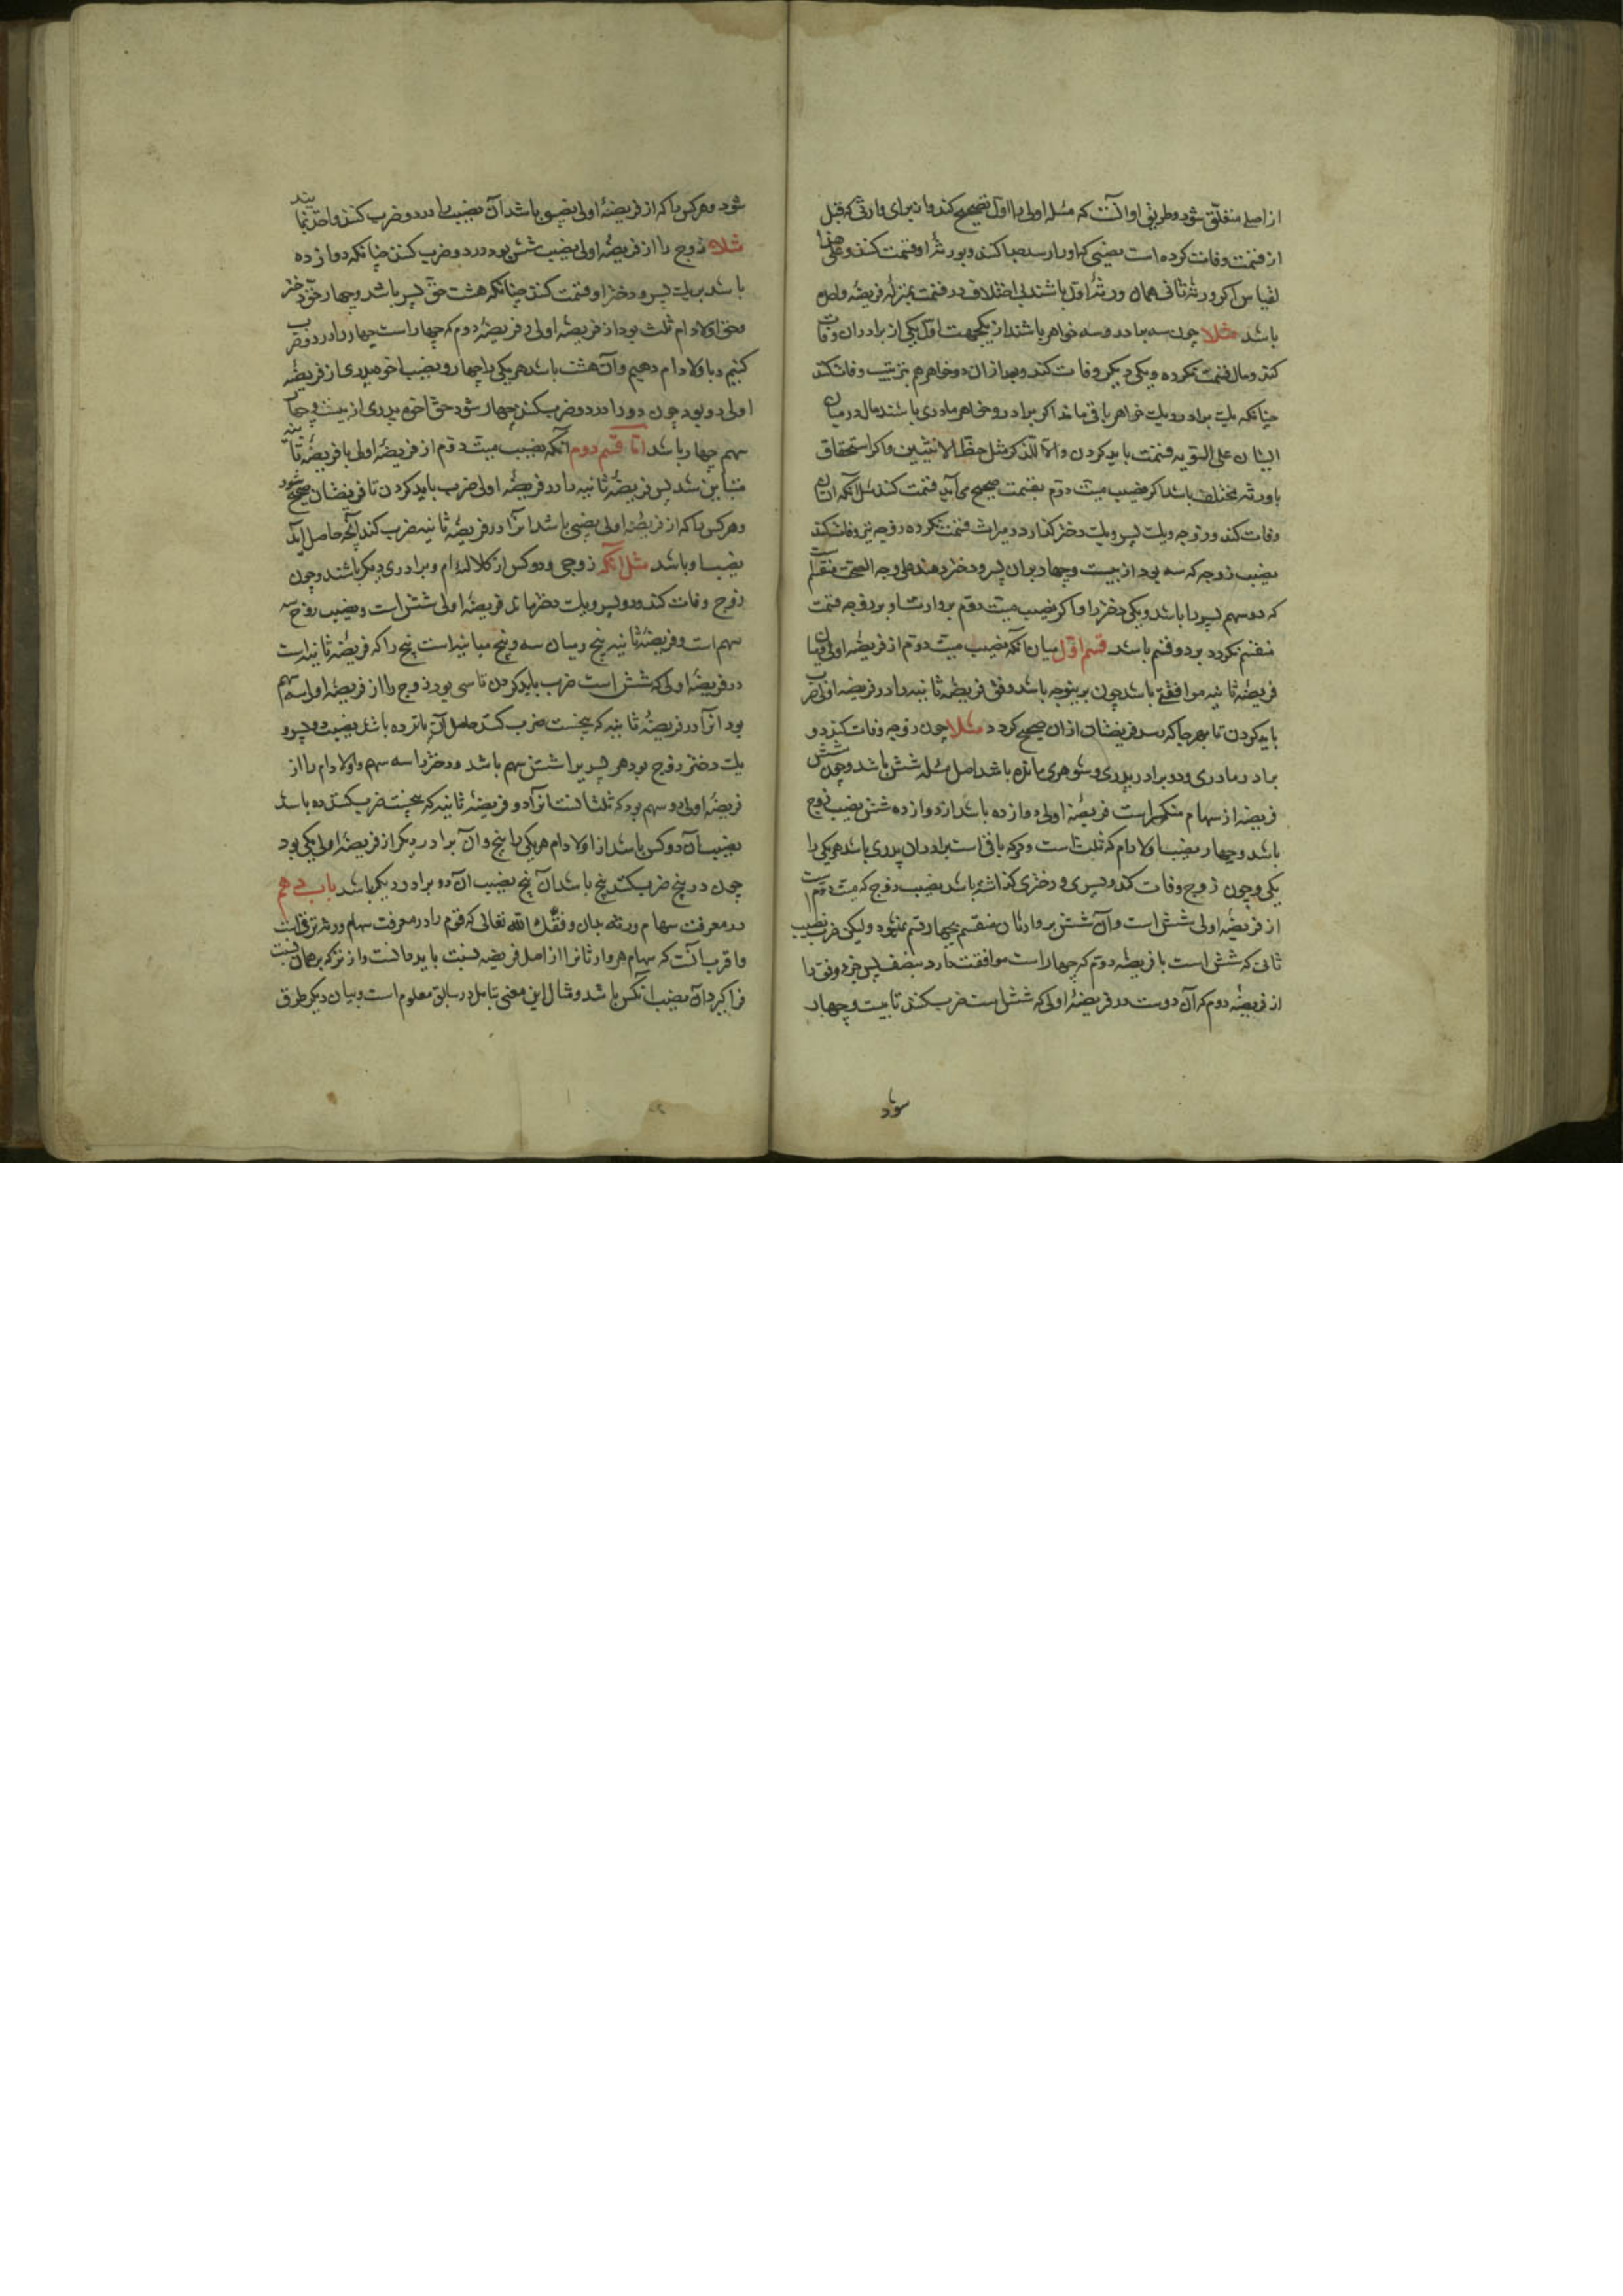 از اصلے متعلّق شود وطریق او آنست که مسئله اولی را اوّل تصحیح کند و از برای وارثی که قبل
از قسمت وفات کرده است نصیبی که او را رسد جدا کند وبورثهٔ او قسمت کنند وعلی هذا
القیاس اکر ورثهٔ ثانی همان ورثهٔ اوّل باشند بی اختلاف در قسمت بمنزلهٔ فریضهٔ واحد
باشد مثلا چون سه برادر وسه خواهر باشند از یکجهت اوّل یکی از برادران وفات
کند ومال قسمت نکرده ویکی دیکر وفات کند وبعد ازان دو خواهر هم بترتیب وفات کند
چنانکه یک برادر ویک خواهر باقی ماند اکر برادر وخواهر مادری باشند مال درمیان
ایشان علی السّویه قسمت باید کردن والّا للذکر مثل حظّ الانثیین واکر استحقاق
باورثه مختلف باشد اکر نصیب میت دوّم بقسمت صحیح می آید قسمت کند مثل آنکه انسان
وفات کند وزوجه ویک پسر ویک دختر کذارد ومیراث قسمت نکرده زوجه نیز وفات کند
نصیب زوجه که سه بود از بیست وچهار بدان پسر ودختر دهند علی وجه الصحّت منقسم است
که دو سهم پسر را باشد ویکی دختر را واکر نصیب میت دوّم بر وارثان او بر دو وجه قسمت
منقسم نکردد بر دو قسم باشد قسم اوّل بیان آنکه نصیب میت دوّم از فریضهٔ اولی میان
فریضهٔ ثانیه موافقتی باشد چون برینوجه باشد وفق فریضهٔ ثانیه را در فریضه اولی ضرب
باید کردن تا بهر جا که رسد فریضشان ازان صحیح کردد مثلا چون زوجه وفات کند ودو
برادر مادری ودو برادر پدری وشوهری مانده باشد اصل مسئله شش باشد وچون شش
فریضه از سهام منکسر است فریضهٔ اولی دوازده باشد از دوازده شش نصیب زوج
باشد وچهار نصیب اولاد ام که ثلث است ودو که باقی است برادران پدری باشد هر یکی را
یکی وچون زوج وفات کند وپسری ودختری کذاشته باشد نصیب زوج که میت دوّم است
از فریضهٔ اولی شش است وآن شش بر وارثان منقسم بچهار قسم نمیشود ولیکن ضرب نصیب
ثانی که شش است با فریضه دوّم که چهار است موافقت دارد بنصف پس جزو وفق را
از فریضه دوم که آن دوست در فریضهٔ اولی که شش است ضرب کنند تا بیست وچهار
شود
شود وهر کس را که از فریضهٔ اولی نصیبی باشد آن نصیب را در دو ضرب کنند واخذ نمایند
مثلا زوج را از فریضهٔ اولی نصیب شش بود در دو ضرب کنند چنانکه دوازده
باشد بر یک پسر ودختر او قسمت کنند چنانکه هشت حق پسر باشد وچهار حق دختر
وحق اولاد ام ثلث بود از فریضه اولی وفریضهٔ دوم که چهار است چهار را در دو ضرب
کنیم وباولاد ام دهیم وآن هشت باشد هر یکی را چهار ونصیب اخوه پدری از فریضهٔ
اولی دو بود چون دو را در دو ضرب کنند چهار شود حق اخوه پدری از بیست وچهار
سهم چهار باشد امّا قسم دوم آنکه نصیب میت دوّم از فریضهٔ اولی با فریضهٔ ثانیه
متباین شد پس فریضهٔ ثانیه را در فریضهٔ اولی ضرب باید کردن تا فریضشان صحیح شود
وهر کس را که از فریضهٔ اولی نصیبی باشد انرا در فریضهٔ ثانیه ضرب کند آنچه حاصل آید
نصیب او باشد مثل آنکه زوجی ودو کس از کلالهٔ ام وبرادری دیکر باشند وچون
زوج وفات کند ودو پسر ویک دختر بماند فریضهٔ اولی شش است ونصیب زوج سه
سهم است وفریضهٔ ثانیه پنج ومیان سه وپنج مباینه است پنج را که فریضهٔ ثانیه است
در فریضهٔ اولی که شش است ضرب باید کردن تا سی بود زوج را از فریضهٔ اولی سه سهم
بود انرا در فریضهٔ ثانیه که پنجست ضرب کنند حاصل آن پانزده باشد نصیب دو پسر و
یک دختر زوج بود هر پسر را شش سهم باشد ودختر را سه سهم واولاد ام را از
فریضهٔ اولی دو سهم بود که ثلثست انرا در فریضهٔ ثانیه که پنجست ضرب کنند ده باشد
نصیب آن دو کس باشد از اولاد ام هر یکی را پنج وآن برادر دیکر از فریضهٔ اولی یکی بود
چون در پنج ضرب کنند پنج باشد آن پنج نصیب ان برادر دیکر باشد باب دهم
در معرفت سهام ورثه بدان وفقک الله تعالی که قوم را در معرفت سهام ورثه طرق است
واقرب آنست که سهام هر وارث انرا از اصل فریضه نسبت باید دانست واز ترکه بر همان نسبت
فرا کیرد آن نصیب آنکس باشد ومثال این معنی بتامل در سابق معلوم است وبیان دیکر طرق